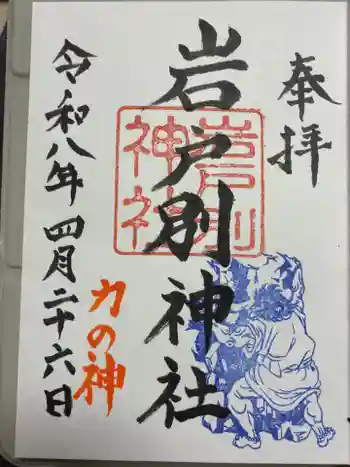 奉拝
岩戸別神社
岩戸別
神社
力の神
令和八年四月二十六日